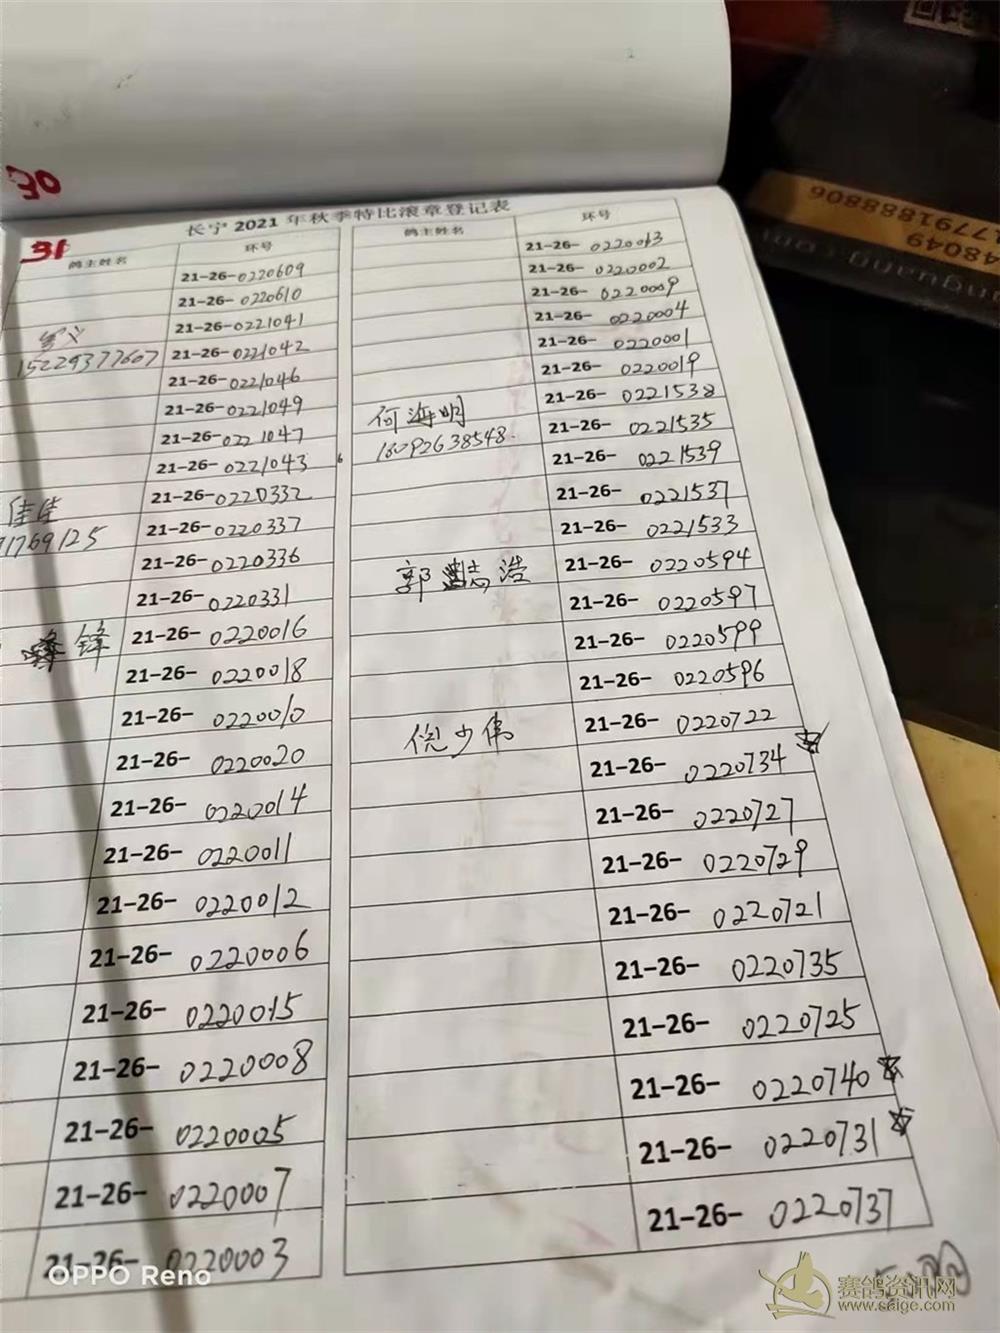 30
31
长宁 2021 年秋季特比滚章登记表
鸽主姓名 环号
21-26-0220609
21-26-0220610
21-26-0221041
15229377607 21-26-0221042
21-26-0221046
21-26-0221049
21-26-0221047
21-26-0221043
佳佳 21-26-0220332
1769125 21-26-0220337
21-26-0220336
21-26-0220331
锋 21-26-0220016
21-26-0220018
21-26-0220010
21-26-0220020
21-26-0220014
21-26-0220011
21-26-0220012
21-26-0220006
21-26-0220015
21-26-0220008
21-26-0220005
21-26-0220007
21-26-0220003
鸽主姓名 环号
21-26-0220013
21-26-0220002
21-26-0220009
21-26-0220004
21-26-0220001
21-26-0220019
何海明 21-26-0221538
18092638548. 21-26-0221535
21-26-0221539
21-26-0221537
21-26-0221533
郭浩 21-26-0220594
21-26-0220597
21-26-0220599
21-26-0220596
倪少伟 21-26-0220722
21-26-0220734
21-26-0220727
21-26-0220729
21-26-0220721
21-26-0220735
21-26-0220725
21-26-0220740
21-26-0220731
21-26-0220737
48049
17791888806
OPPO Reno
赛鸽资讯网
www.saige.com